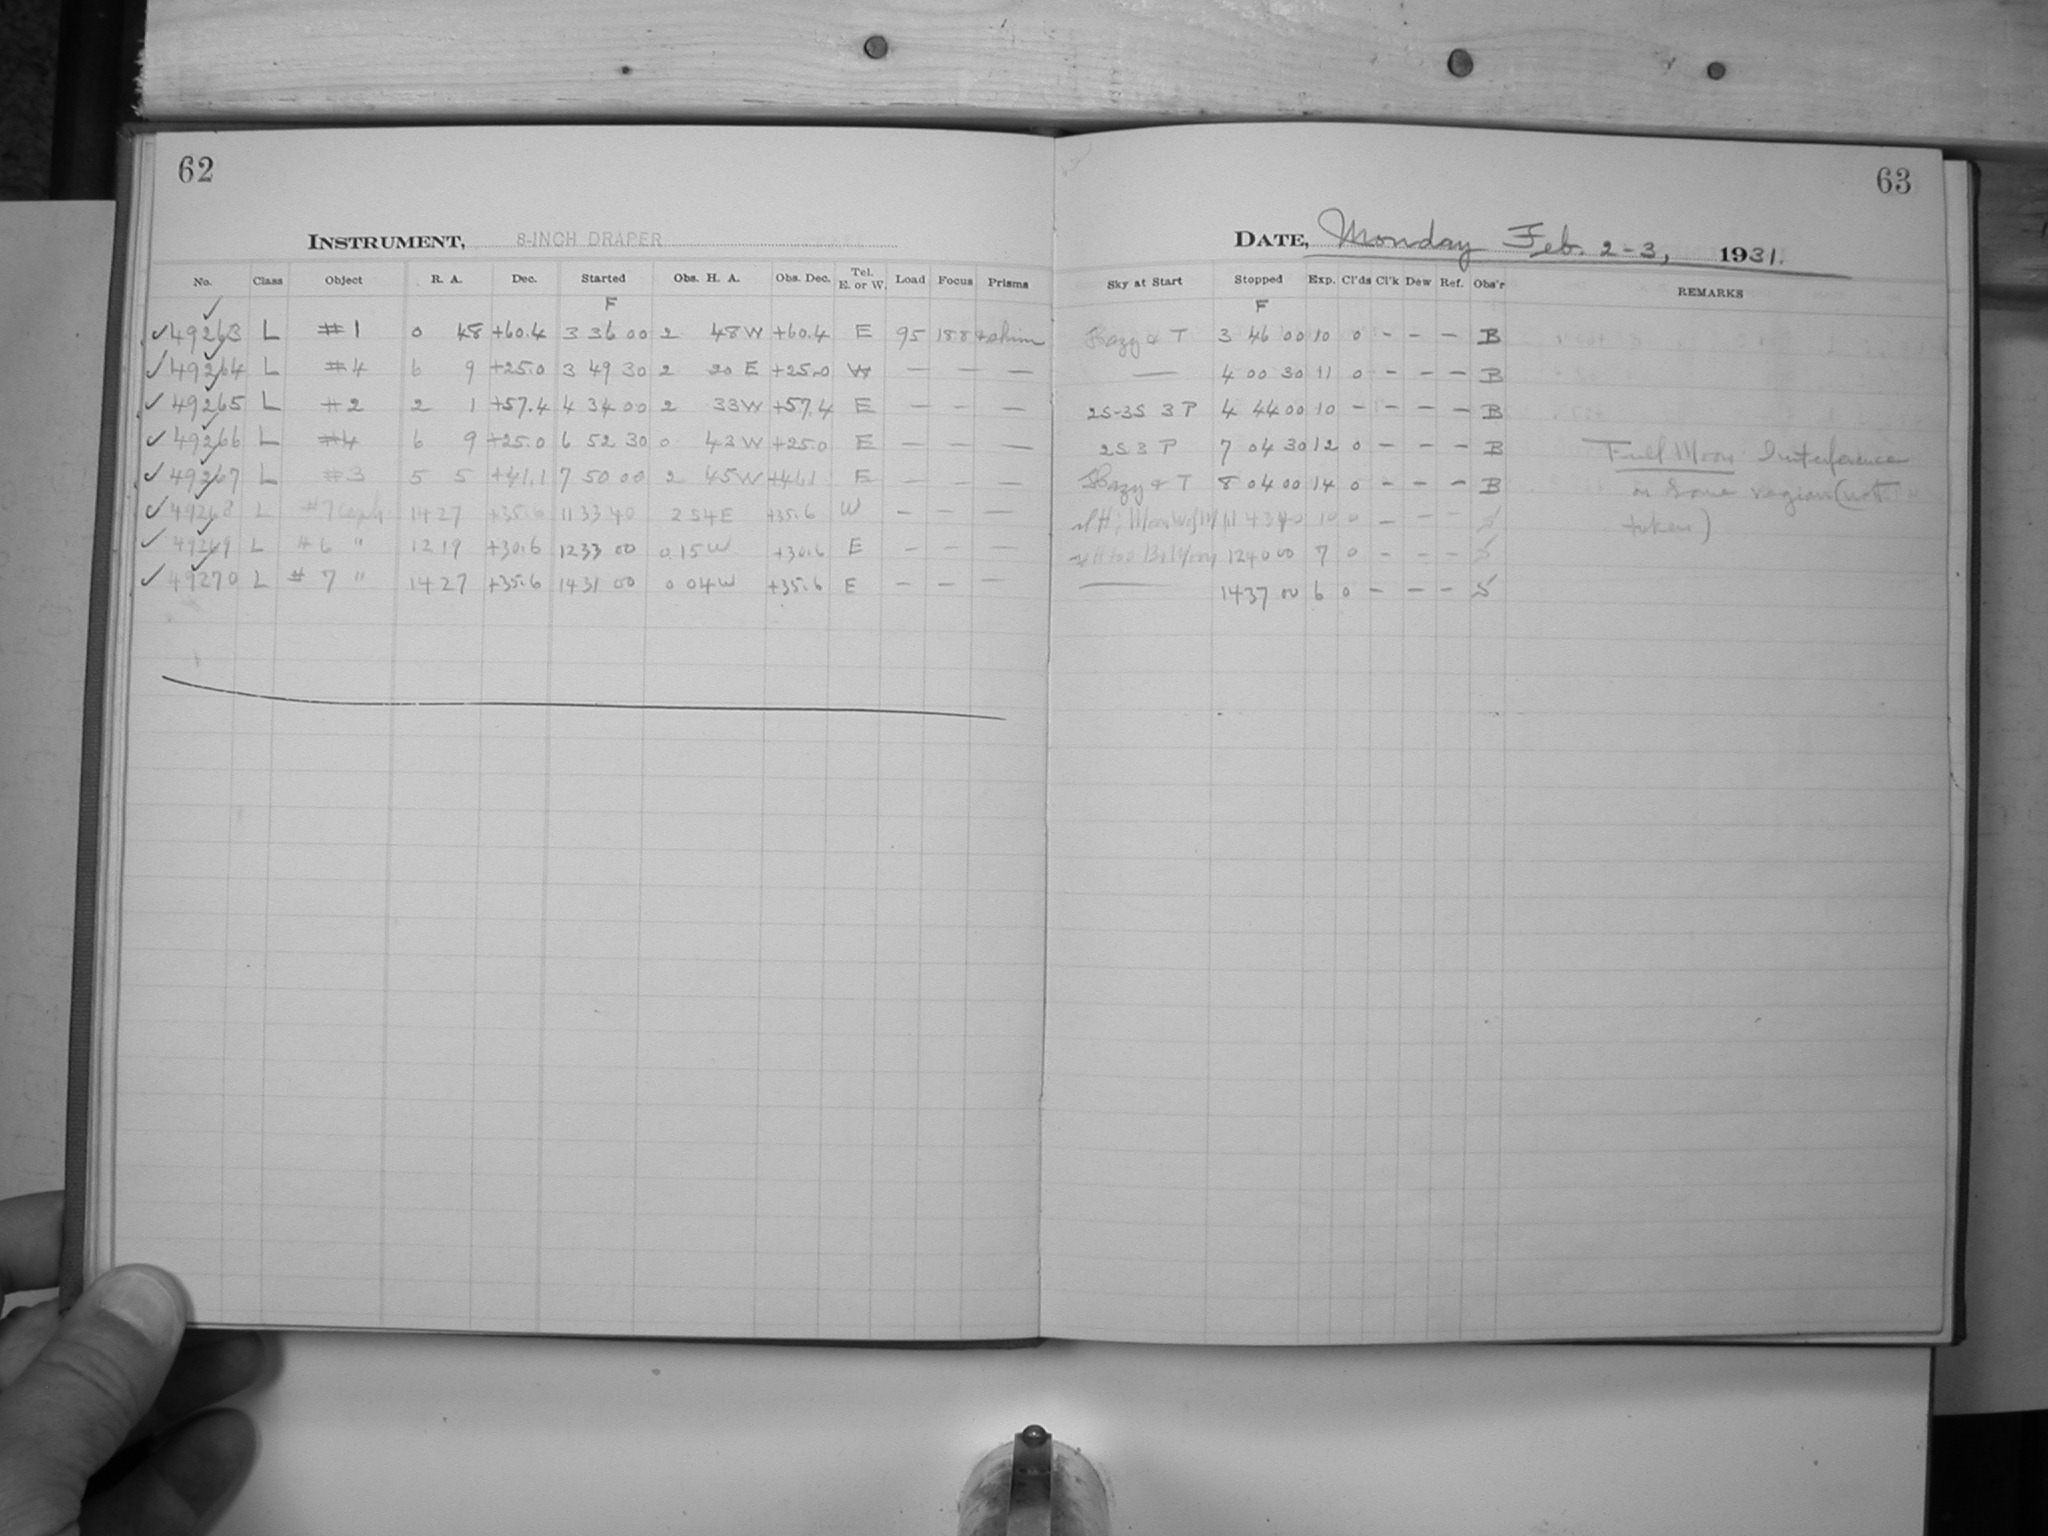 62
INSTRUMENT, 8-INCH DRAPER
No. Class Object R. A. Dec. Started Obs. H. A. Obs. Dec. Tel. E. or W. Load Focus Prisms
F
✓ 49263 L #1 0 48 +60.4 3 36 00 2 48 W +60.4 E 95 188
✓ 49264 L #4 6 9 +25.0 3 49 30 2 20 E +25.0 W — — —
✓ 49265 L #2 2 1 +57.4 4 34 00 2 33 W +57.4 E — — —
✓ 49266 L #4 6 9 +25.0 6 52 30 0 43 W +25.0 E — — —
✓ 49267 L #3 5 5 +41.1 7 50 00 2 45 W E — — —
✓ 49268 L #7 14 27 +35.6 11 33 40 2 54 E +35.6 W — — —
✓ 49269 L #6 " 12 19 +30.6 12 33 00 0 15 W +30.6 E — — —
✓ 49270 L # 7 " 14 27 +35.6 14 31 00 0 04 W +35.6 E — — —
63
DATE, Monday Feb. 2-3, 1931.
Sky at Start Stopped Exp. Cl'ds Cl'k Dew Ref. Obs'r REMARKS
F
Hazy & T 3 46 00 10 0 - - - B
— 4 00 30 11 0 - - - B
2S-3S 3 P 4 44 00 10 - - - - B
2S 3 P 7 04 30 12 0 - - - B Full Moon Interference
Hazy & T 8 04 00 14 0 - - - B on some region (not
10 0 - - - taken)
12 40 00 7 0 - - -
— 14 37 00 6 0 - - -